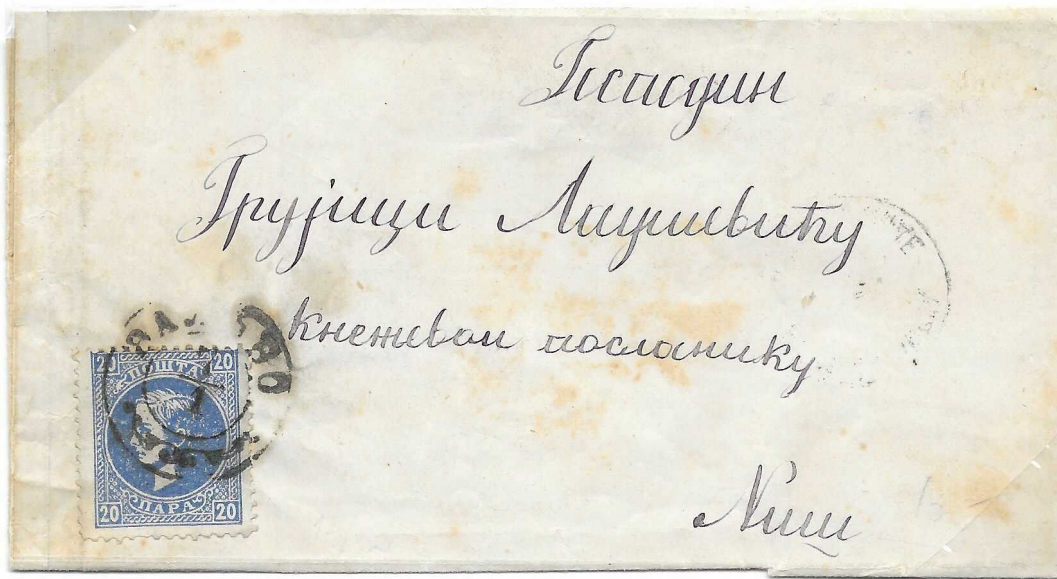 Господин
Грујици Лаушевићу
кнежевом посланику
Ниш
20 20
ПОШТА
ПАРА
20 20